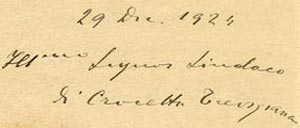 29 Dic. 1924
Ill.mo Signor Sindaco
di Crocetta Trevigiana